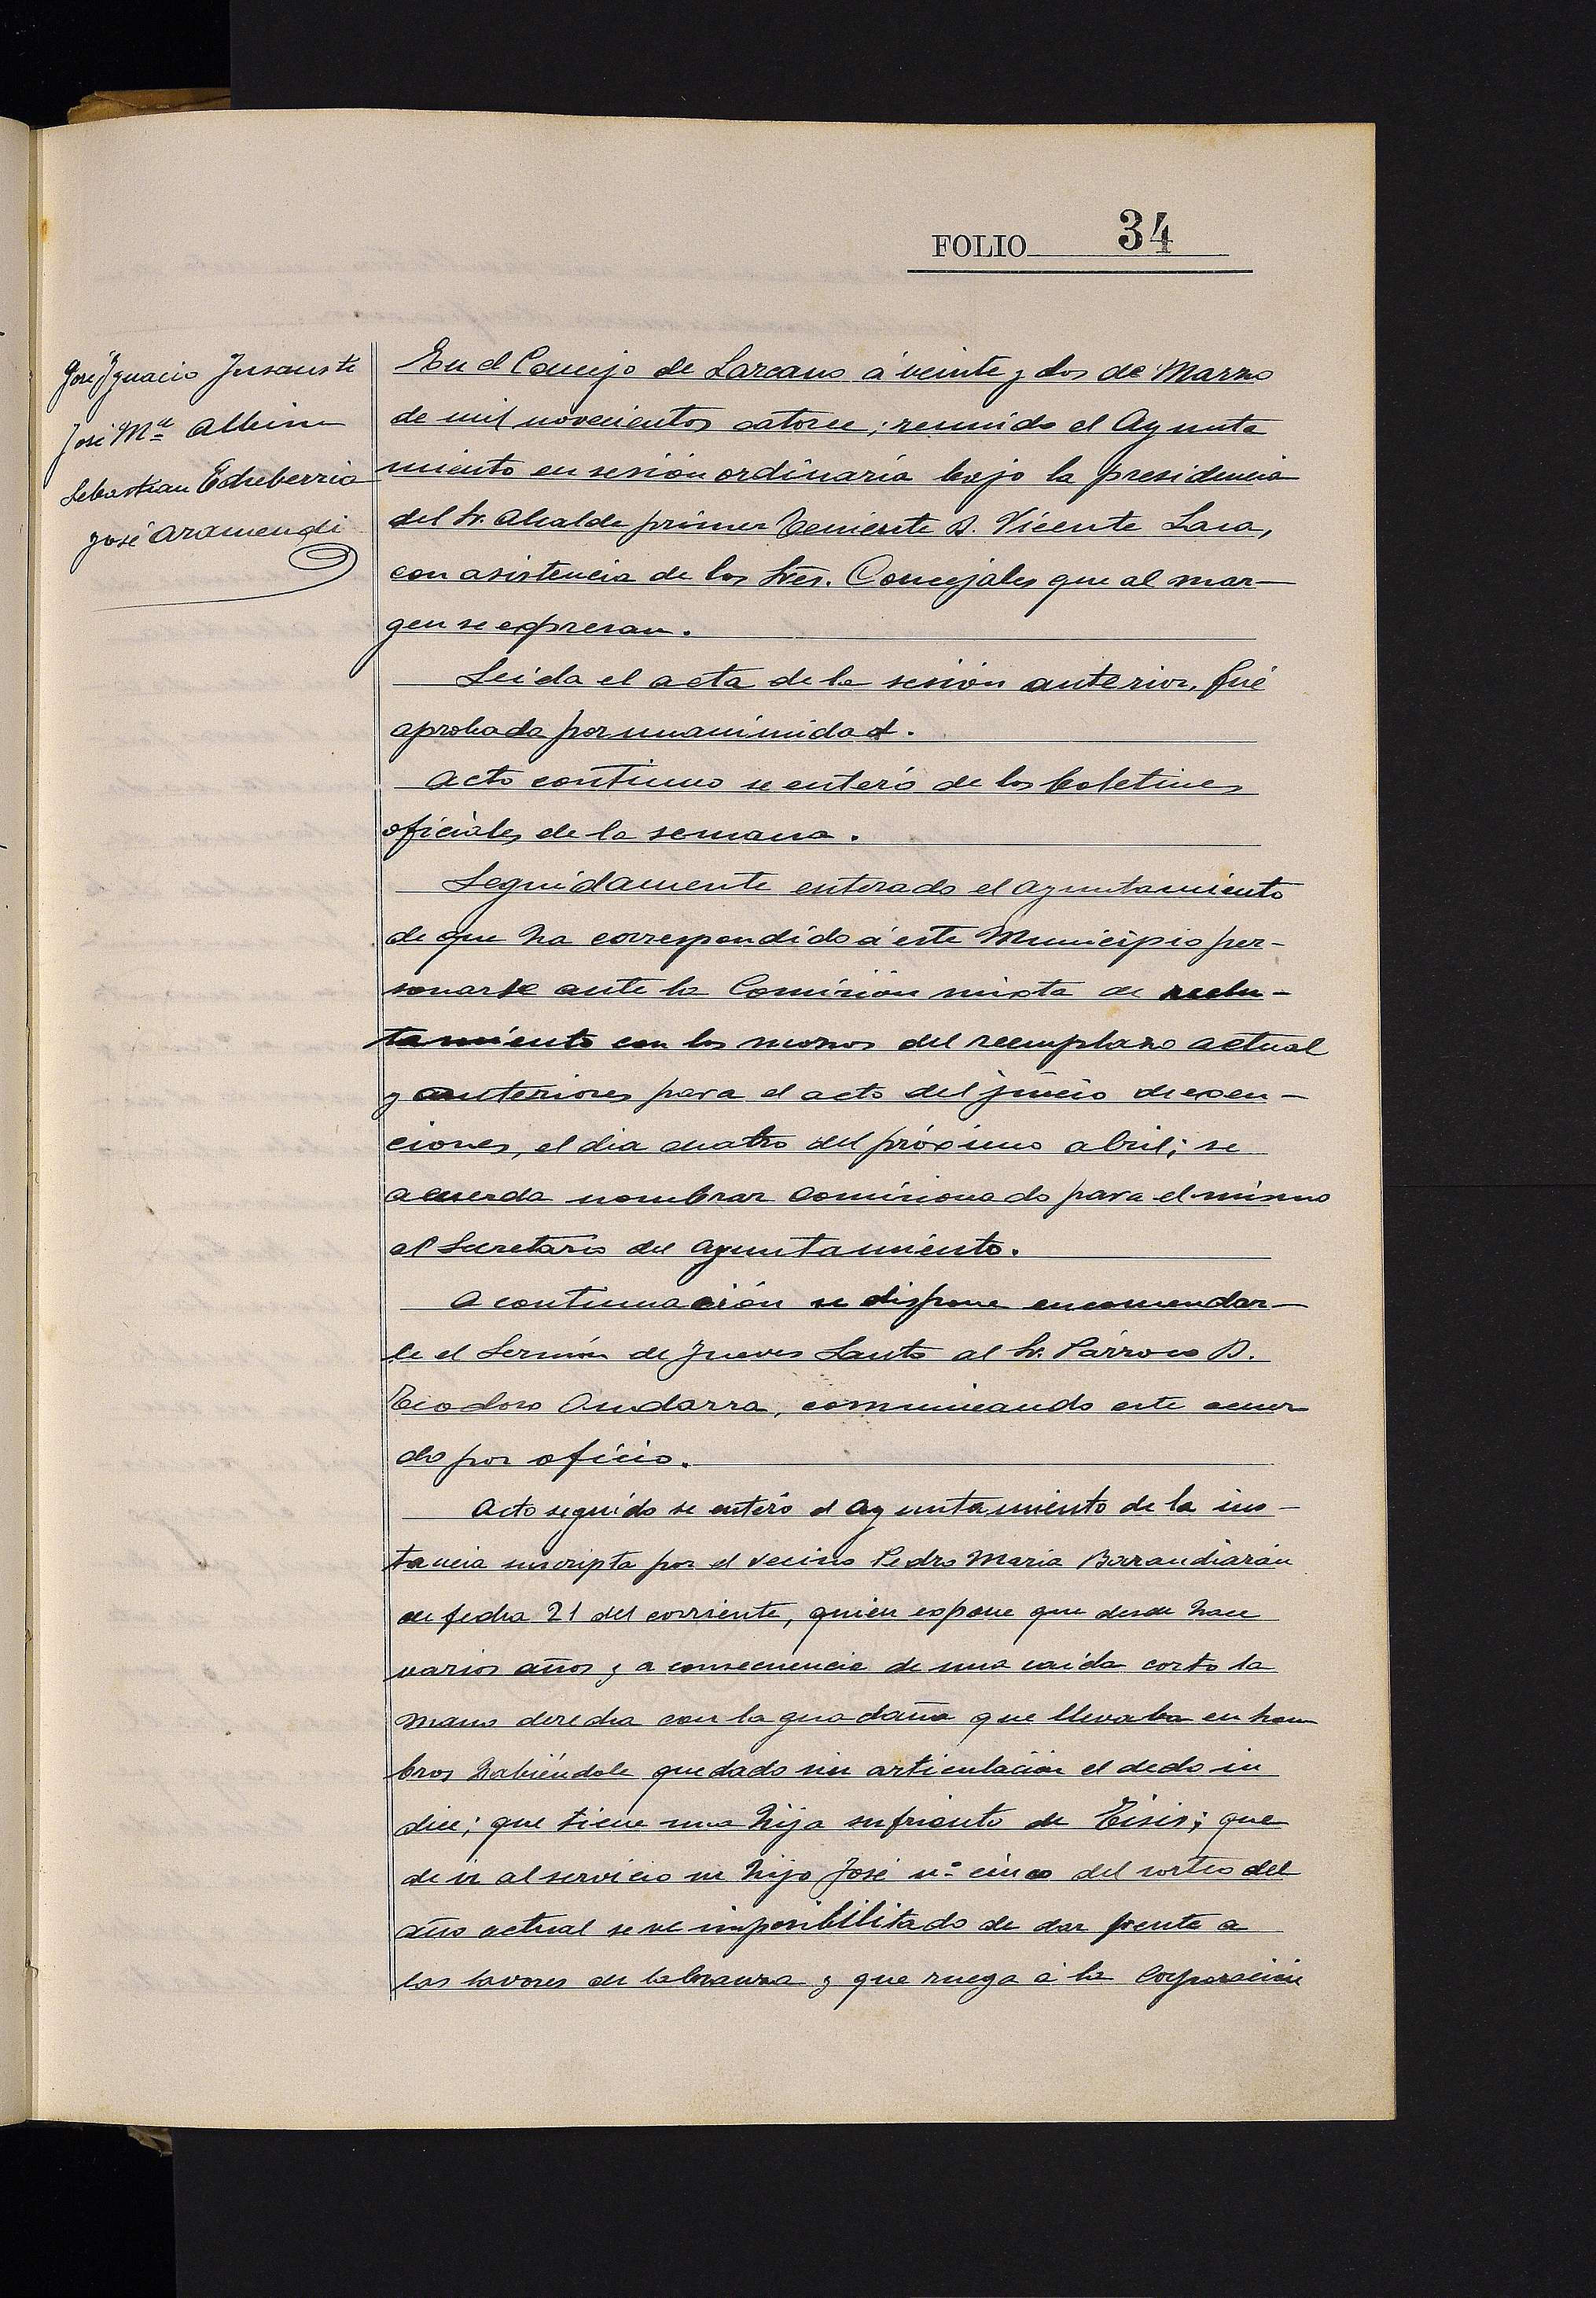 FOLIO 34
José Ignacio Insausti
José Mª Albisu
Sebastian Echeberria
José Aramendi
En el Concejo de Lazcano á veinte y dos de Marzo
de mil novecientos catorce; reunido el Ayunta
miento en sesión ordinaria bajo la presidencia
del Sr. Alcalde primer Teniente D. Vicente Lasa,
con asistencia de los Sres. Concejales que al mar-
gen se expresan.
Leida el acta de la sesión anterior, fué
aprobada por unanimidad.
Acto continuo se enteró de los boletines
oficiales de la semana.
Seguidamente enterado el Ayuntamiento
de que ha correspondido á este Municipio per-
sonarse ante la Comisión mixta de reclu-
tamiento con los mozos del reemplazo actual
y anteriores para el acto del juicio de exen-
ciones, el dia cuatro del próximo abril; se
acuerda nombrar comisionado para el mismo
al Secretario del Ayuntamiento.
A continuación se dispone encomendar-
le el Sermón de Jueves Santo al Sr. Párroco D.
Teodoro Andarra, comunicando este acuer
do por oficio.
Acto seguido se enteró el Ayuntamiento de la ins-
tancia suscripta por el vecino Pedro Maria Barandiarán
de fecha 21 del corriente, quien expone que desde hace
varios años y a consecuencia de una caida corto la
mano derecha con la guadaña que llevaba en hom
bros habiéndole quedado sin articulación el dedo in
dice; que tiene una hija sufriento de Tisis; que
de ir al servicio su hijo José nº cinco del sorteo del
año actual se ve imposibilitado de dar frente a
las lavores de labranza y que ruega á la Corporación